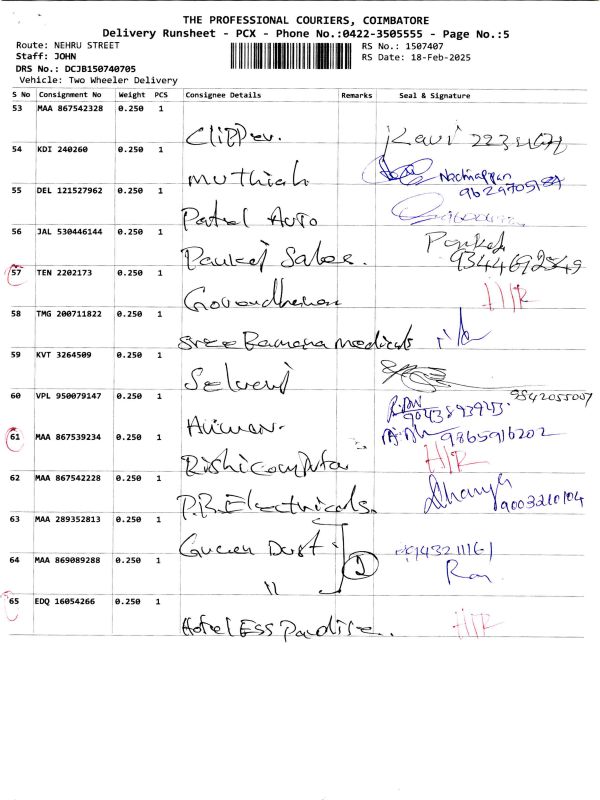 THE PROFESSIONAL COURIERS, COIMBATORE
Delivery Runsheet - PCX - Phone No.:0422-3505555 - Page No.:5
Route: NEHRU STREET
RS No.: 1507407
Staff: JOHN
RS Date: 18-Feb-2025
DRS No.: DCJB150740705
Vehicle: Two Wheeler Delivery
S No Consignment No Weight PCS Consignee Details Remarks Seal & Signature
53 MAA 867542328 0.250 1
Clipper.
54 KDI 240260 0.250 1
Muthiah Nachiappan
9629705187
55 DEL 121527962 0.250 1
Patel Auto
56 JAL 530446144 0.250 1
Pankaj Sales. Pankaj
9344692549
57 TEN 2202173 0.250 1
Govardhanan H/R
58 TMG 200711822 0.250 1
Sree Ramana Medicals
59 KVT 3264509 0.250 1
Selvan
9842055007
60 VPL 950079147 0.250 1
9043893943.
61 MAA 867539234 0.250 1
9865916202
Rishi Computer H/R
62 MAA 867542228 0.250 1
P.R. Electricals. Dhanya
9003210104
63 MAA 289352813 0.250 1
9443211161
64 MAA 869089288 0.250 1
"
65 EDQ 16054266 0.250 1
Hotel Ess Pardise. H/R